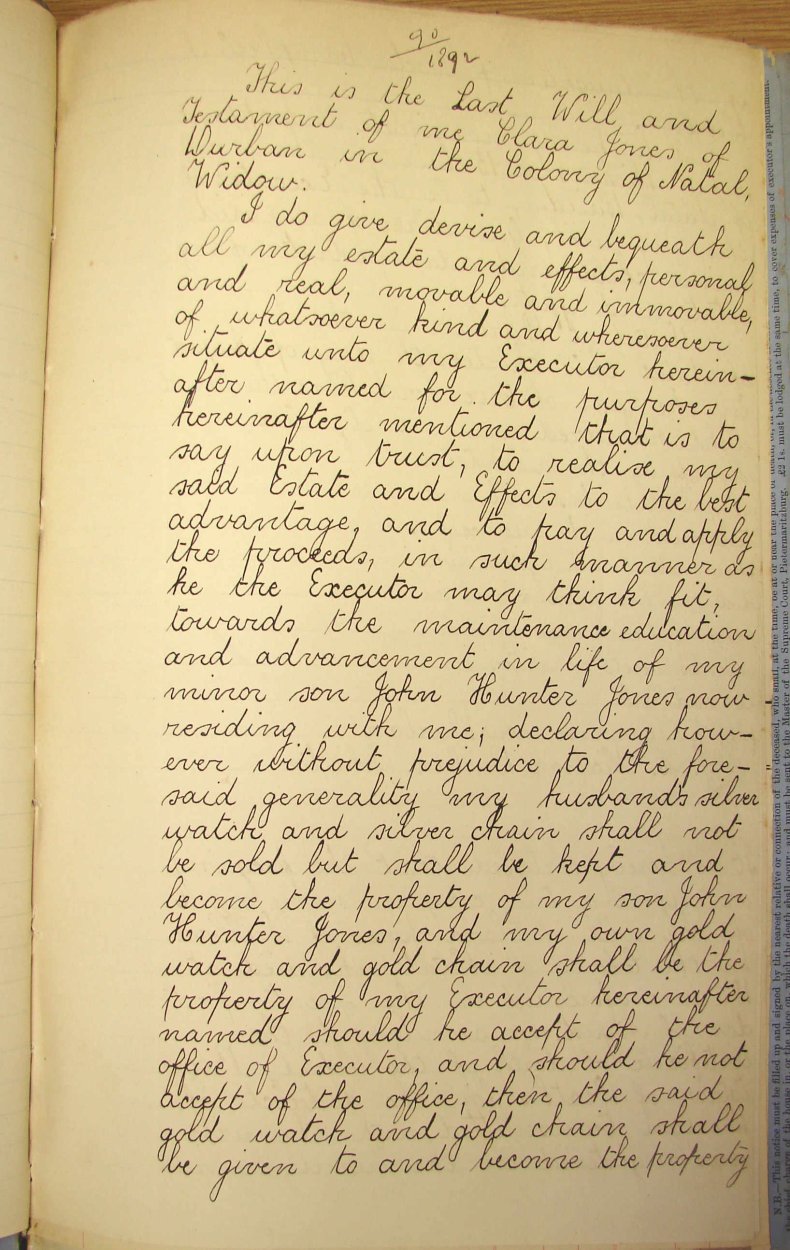 90
1892
This is the Last Will and
Testament of me Clara Jones of
Durban in the Colony of Natal,
Widow.
I do give devise and bequeath
all my estate and effects, personal
and real, movable and immovable,
of whatsoever kind and wheresoever
situate unto my Executor herein-
after named for the purposes
hereinafter mentioned that is to
say upon trust, to realise my
said Estate and Effects to the best
advantage, and to pay and apply
the proceeds, in such manner as
he the Executor may think fit,
towards the maintenance education
and advancement in life of my
minor son John Hunter Jones now
residing with me; declaring how-
ever without prejudice to the fore-
said generality my husband's silver
watch and silver chain shall not
be sold but shall be kept and
become the property of my son John
Hunter Jones, and my own gold
watch and gold chain shall be the
property of my Executor hereinafter
named should he accept of the
office of Executor, and should he not
accept of the office, then the said
gold watch and gold chain shall
be given to and become the property
N.B.—This notice must be filled up and signed by the nearest relative or connection of the deceased, who shall, at the time, be at or near the place of death,
the house in, or the place on, which the death shall occur; and must be sent to the Master of the Supreme Court, Pietermaritzburg. £2 1s. must be lodged at the same time, to cover expenses of executor's appointment.